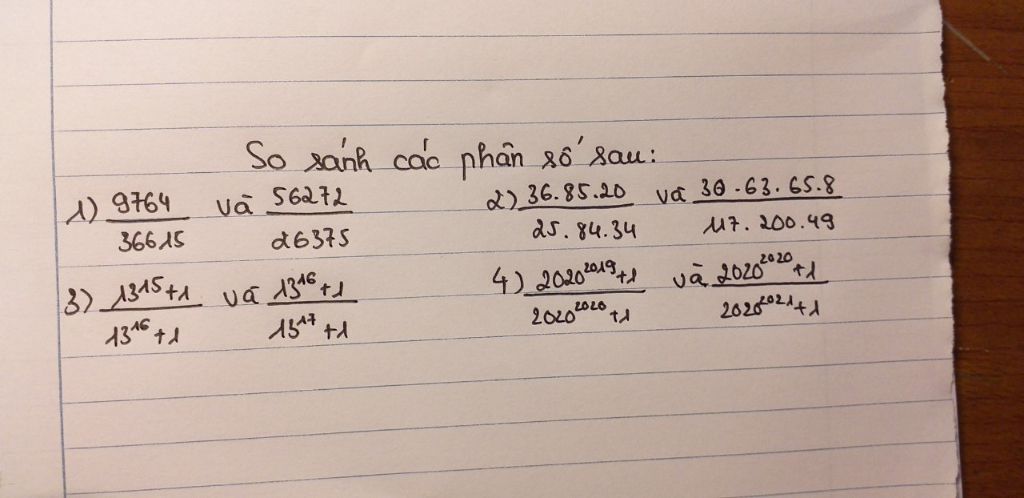 So sánh các phân số sau:
1) 9764/36615 và 56272/26375 2) 36.85.20/25.84.34 và 30.63.65.8/117.200.49
3) (13¹⁵+1)/(13¹⁶+1) và (13¹⁶+1)/(13¹⁷+1) 4) (2020²⁰¹⁹+1)/(2020²⁰²⁰+1) và (2020²⁰²⁰+1)/(2020²⁰²¹+1)